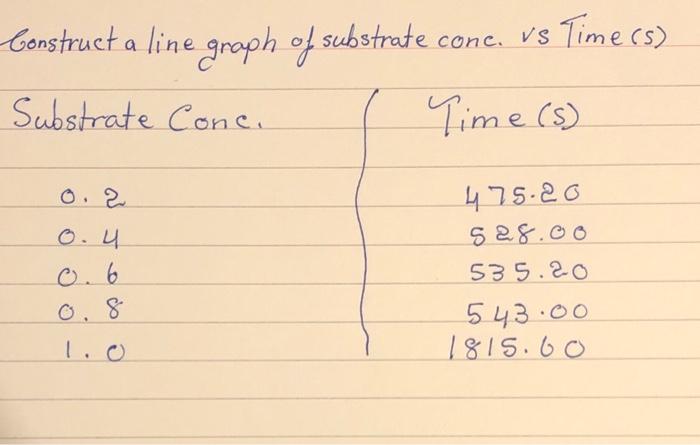 Construct a line graph of substrate conc. vs Time (s)
Substrate Conc. Time (s)
0.2 475.20
0.4 528.00
0.6 535.20
0.8 543.00
1.0 1815.60